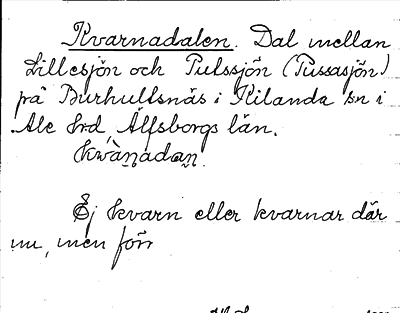 Kvarnadalen. Dal mellan
Lillesjön och Putssjön (Pussasjön)
på Burhultsnäs i Kilanda sn i
Ale hrd, Älfsborgs län.
kwànadan.
Ej kvarn eller kvarnar där
nu, men förr